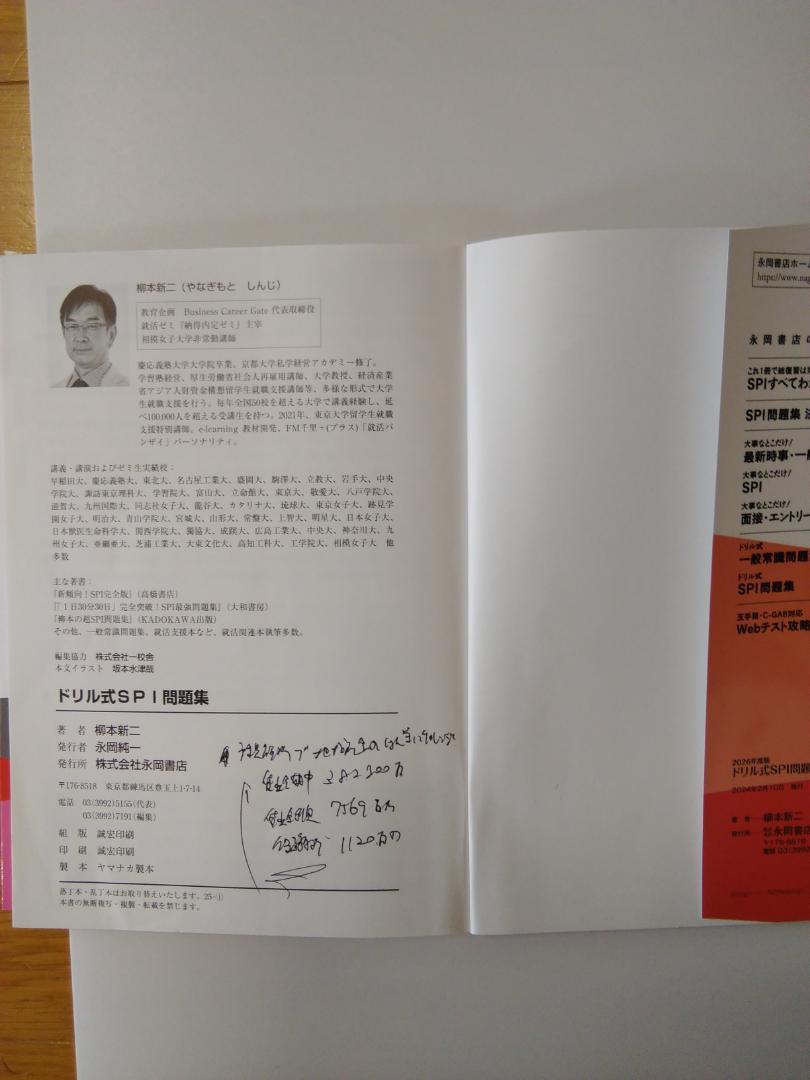 柳本新二（やなぎもと　しんじ）
教育企画　Business Career Gate 代表取締役
就活ゼミ「納得内定ゼミ」主宰
相模女子大学非常勤講師
慶応義塾大学大学院卒業、京都大学私学経営アカデミー修了。
学習塾経営、厚生労働省社会人再雇用講師、大学教授、経済産業
省アジア人財資金構想留学生就職支援講師等、多様な形式で大学
生就職支援を行う。毎年全国50校を超える大学で講義経験し、延
べ100,000人を超える受講生を持つ。2021年、東京大学留学生就職
支援特別講師。e-learning 教材開発、FM千里+(プラス)「就活バ
ンザイ」パーソナリティ。
講義・講演およびゼミ生実績校：
早稲田大、慶応義塾大、東北大、名古屋工業大、盛岡大、駒澤大、立教大、岩手大、中央
学院大、諏訪東京理科大、学習院大、富山大、立命館大、東京大、敬愛大、八戸学院大、
滋賀大、九州国際大、同志社女子大、龍谷大、カタリナ大、琉球大、東京女子大、跡見学
園女子大、明治大、青山学院大、宮城大、山形大、常盤大、上智大、明星大、日本女子大、
日本獣医生命科学大、関西学院大、獨協大、成蹊大、広島工業大、中央大、神奈川大、九
州女子大、亜細亜大、芝浦工業大、大東文化大、高知工科大、工学院大、相模女子大　他
多数
主な著書：
『新傾向！SPI完全版』（高橋書店）
『「1日30分30日」完全突破！SPI最強問題集』（大和書房）
『柳本の超SPI問題集』（KADOKAWA出版）
その他、一般常識問題集、就活支援本など、就活関連本執筆多数。
編集協力　株式会社一校舎
本文イラスト　坂本水津哉
ドリル式SPI問題集
著　者　柳本新二
発行者　永岡純一
発行所　株式会社永岡書店
〒176-8518　東京都練馬区豊玉上1-7-14
電話　03(3992)5155(代表)
03(3992)7191(編集)
組　版　誠宏印刷
印　刷　誠宏印刷
製　本　ヤマナカ製本
382300万
7569
1120万
落丁本・乱丁本はお取り替えいたします。25-①
本書の無断複写・複製・転載を禁じます。
永岡書店ホーム
https://www.nag
永岡書店の
SPIすべてわ
SPI問題集
大事なとこだけ！
最新時事・一般
大事なとこだけ！
SPI
大事なとこだけ！
面接・エントリー
ドリル式
一般常識問題
ドリル式
SPI問題集
玉手箱・C-GAB対応
Webテスト攻略
2026年度版
ドリル式SPI問題
2024年2月10日　発行
著　者　柳本新二